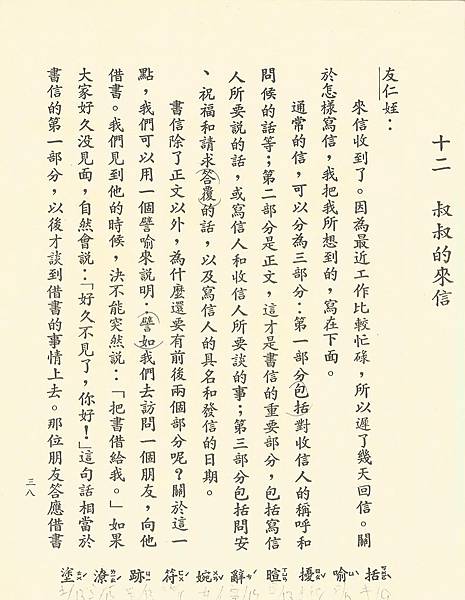 十二　叔叔的來信
友仁姪：
來信收到了。因為最近工作比較忙碌，所以遲了幾天回信。關
於怎樣寫信，我把我所想到的，寫在下面。
通常的信，可以分為三部分：第一部分包括對收信人的稱呼和
問候的話等；第二部分是正文，這才是書信的重要部分，包括寫信
人所要說的話，或寫信人和收信人所要談的事；第三部分包括問安
、祝福和請求答覆的話，以及寫信人的具名和發信的日期。
書信除了正文以外，為什麼還要有前後兩個部分呢？關於這一
點，我們可以用一個譬喻來說明：譬如我們去訪問一個朋友，向他
借書。我們見到他的時候，決不能突然說：「把書借給我。」如果
大家好久沒見面，自然會說：「好久不見了，你好！」這句話相當於
書信的第一部分，以後才談到借書的事情上去。那位朋友答應借書
三八
括 喻 擾 暄 辭 婉 符 跡 潦 塗